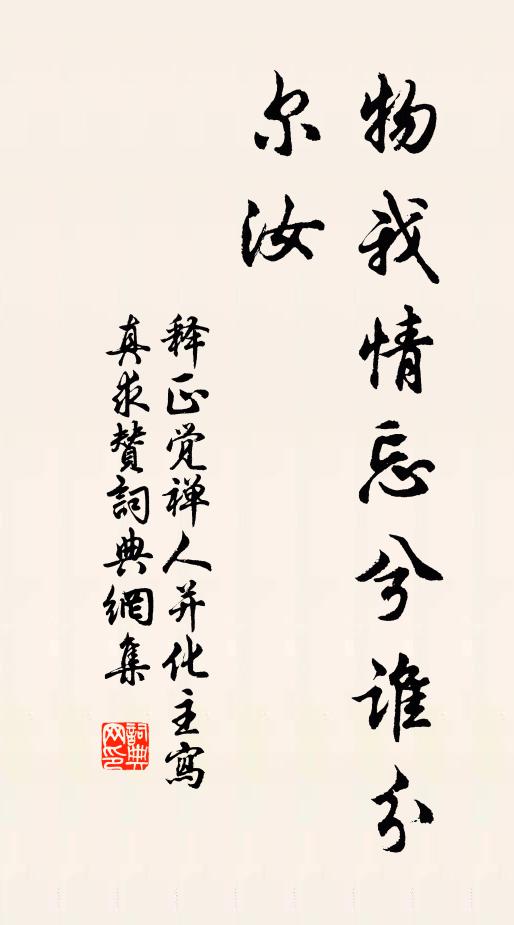 物我情忘兮谁分
尔汝
释正觉禅人并化主寫
真求赞詞典網集
詞典网印